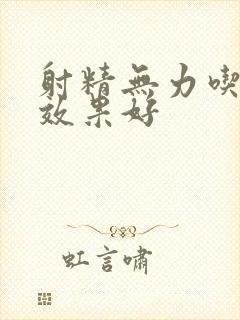 射精無力喫
效果好
虹言嘯